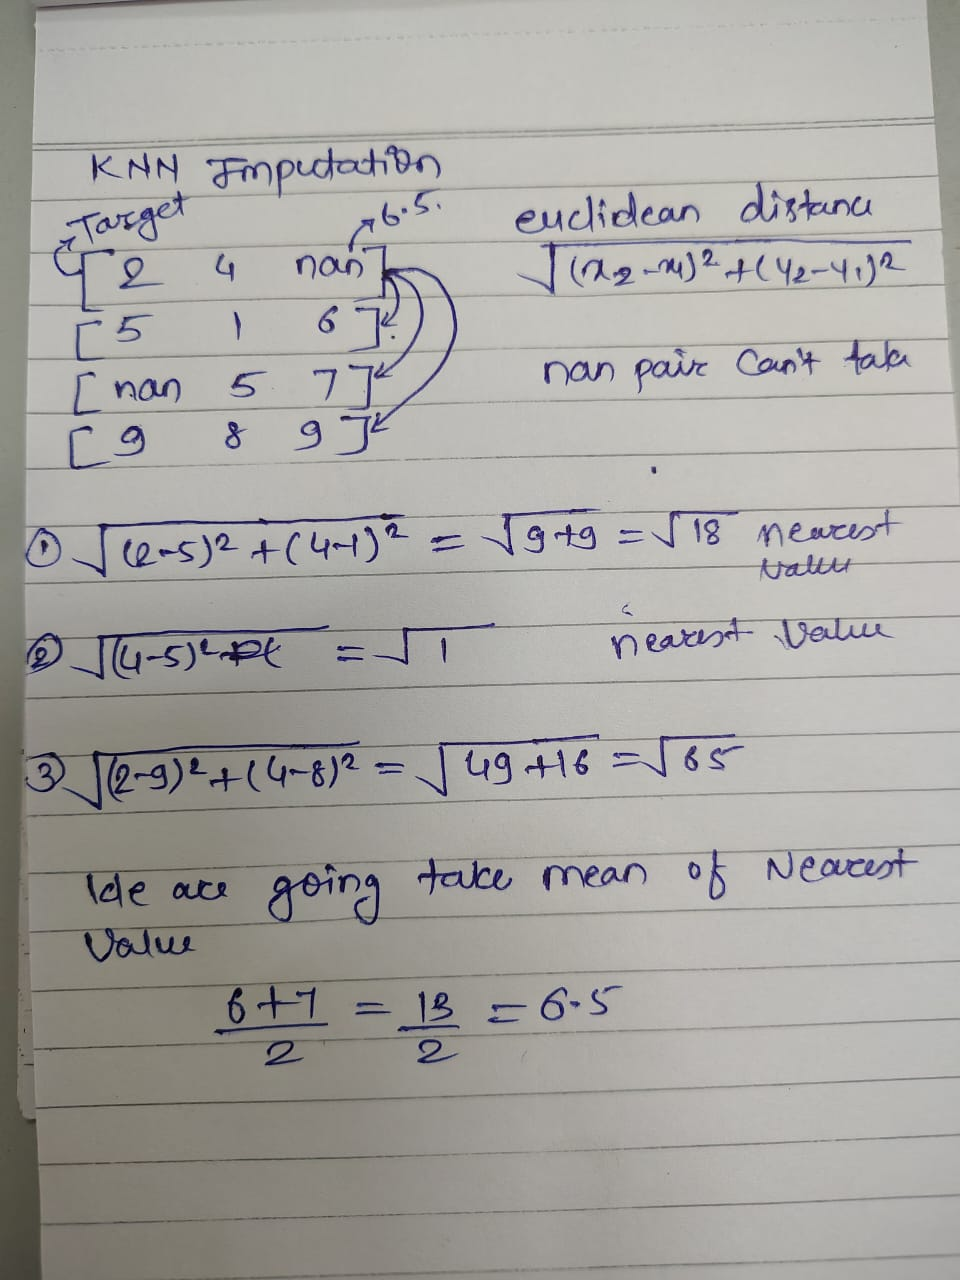 KNN Imputation
Target
6.5.
[2 4 nan]
[5 1 6]
[nan 5 7]
[9 8 9]
euclidean distance
√(x2-x1)² + (y2-y1)²
nan pair Can't take
① √(2-5)² + (4-1)² = √9+9 = √18 nearest
value
② √(4-5)² = √1 nearest Value
③ √(2-9)² + (4-8)² = √49+16 = √65
We are going take mean of Nearest
Value
6+7/2 = 13/2 = 6.5